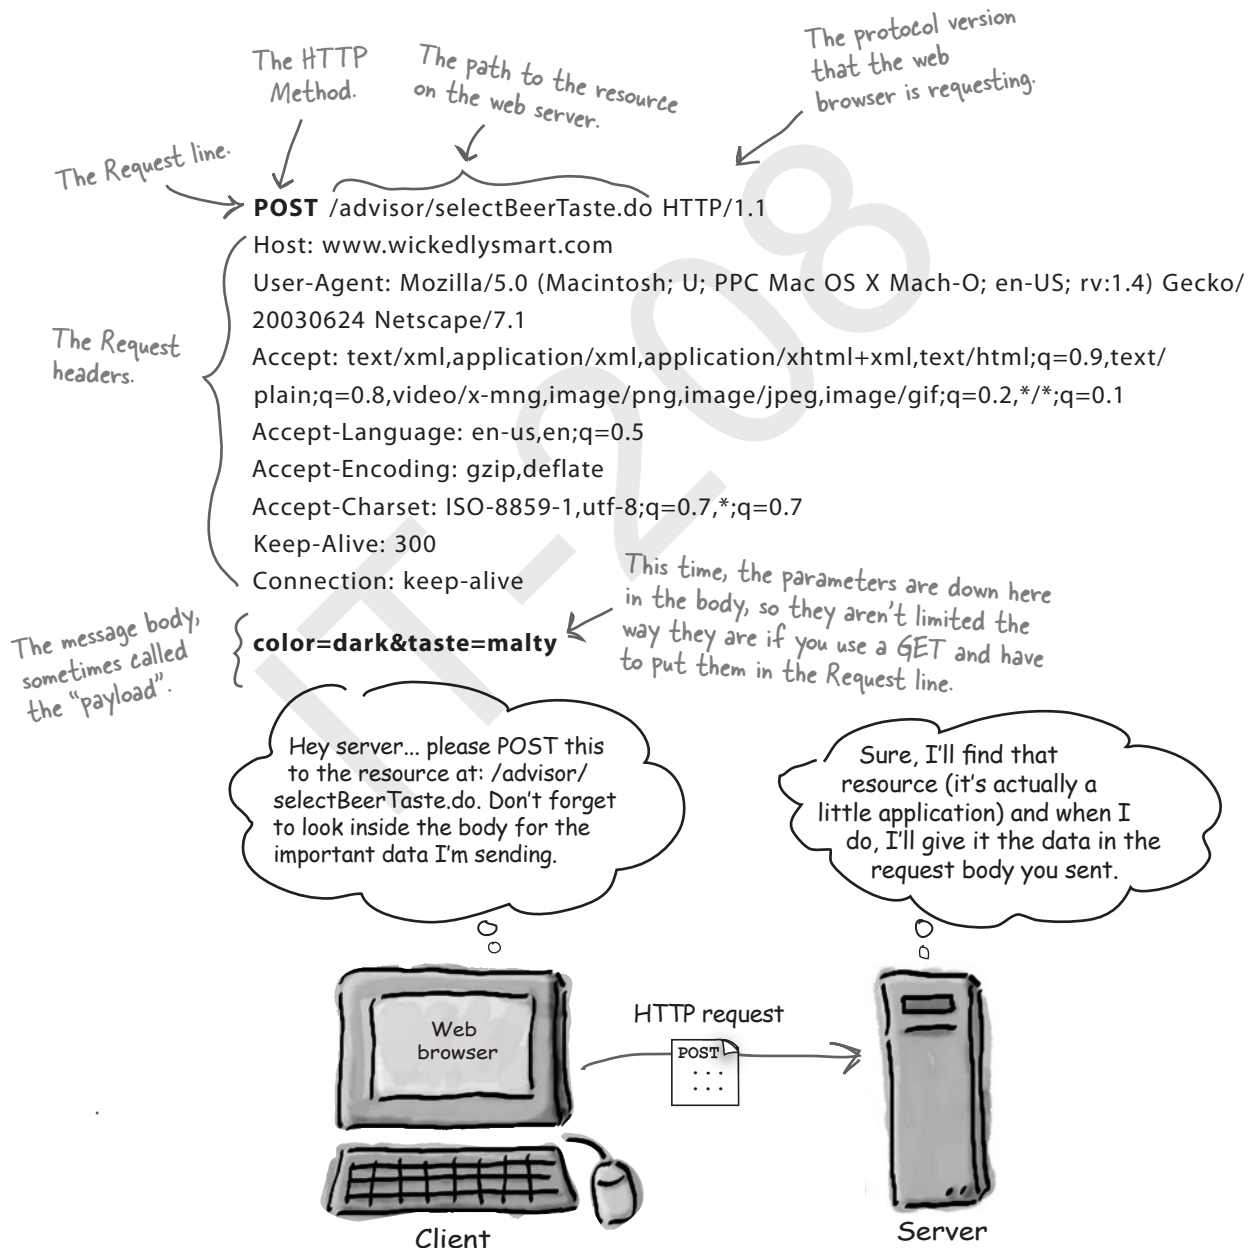 The HTTP
Method.
The path to the resource
on the web server.
The protocol version
that the web
browser is requesting.
The Request line.
POST /advisor/selectBeerTaste.do HTTP/1.1
Host: www.wickedlysmart.com
User-Agent: Mozilla/5.0 (Macintosh; U; PPC Mac OS X Mach-O; en-US; rv:1.4) Gecko/
20030624 Netscape/7.1
Accept: text/xml,application/xml,application/xhtml+xml,text/html;q=0.9,text/
plain;q=0.8,video/x-mng,image/png,image/jpeg,image/gif;q=0.2,*/*;q=0.1
Accept-Language: en-us,en;q=0.5
Accept-Encoding: gzip,deflate
Accept-Charset: ISO-8859-1,utf-8;q=0.7,*;q=0.7
Keep-Alive: 300
Connection: keep-alive
The Request
headers.
color=dark&taste=malty
The message body,
sometimes called
the "payload".
This time, the parameters are down here
in the body, so they aren't limited the
way they are if you use a GET and have
to put them in the Request line.
IT-208
Hey server... please POST this
to the resource at: /advisor/
selectBeerTaste.do. Don't forget
to look inside the body for the
important data I'm sending.
Sure, I'll find that
resource (it's actually a
little application) and when I
do, I'll give it the data in the
request body you sent.
Web
browser
HTTP request
POST
Client
Server